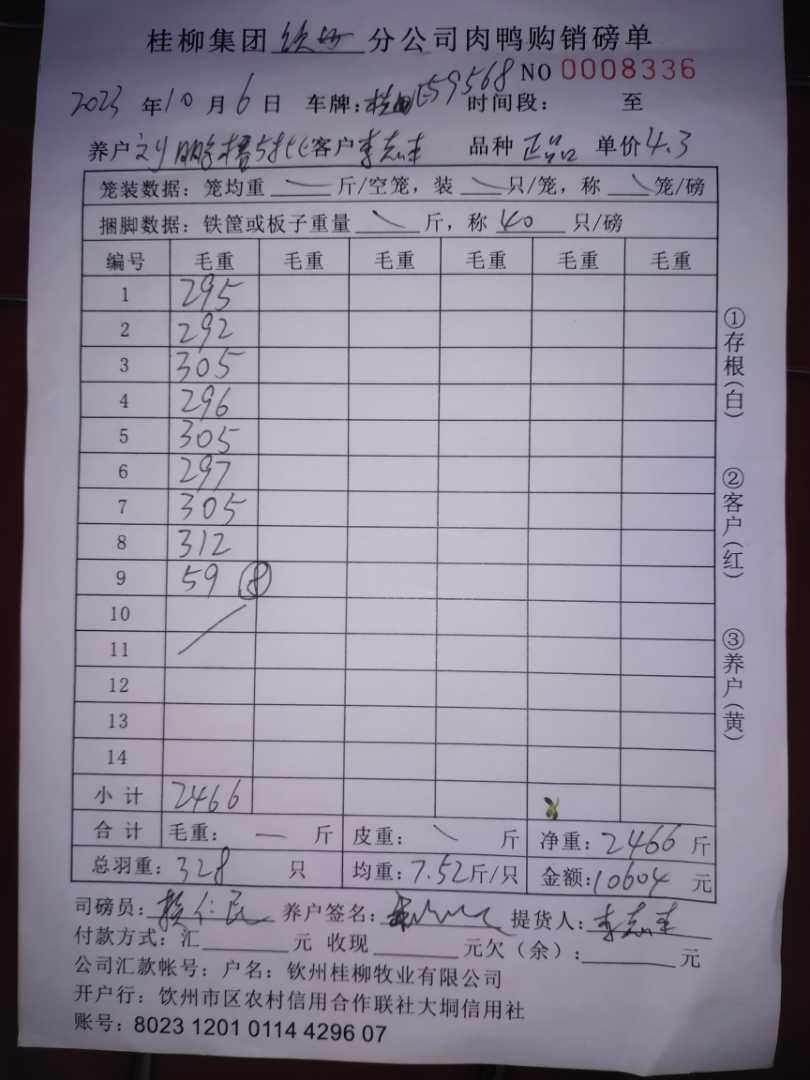 桂柳集团 钦州 分公司肉鸭购销磅单
NO 0008336
2023 年 10 月 6 日 车牌: E59568 时间段: 至
养户 刘 客户 李志丰 品种 正品 单价 4.3
笼装数据: 笼均重 斤/空笼, 装 只/笼, 称 笼/磅
捆脚数据: 铁筐或板子重量 斤, 称 40 只/磅
编号 毛重 毛重 毛重 毛重 毛重 毛重
1 295
2 292
3 305
4 296
5 305
6 297
7 305
8 312
9 59 ⑧
10
11
12
13
14
小计 2466
合计 毛重: — 斤 皮重: 斤 净重: 2466 斤
总羽重: 328 只 均重: 7.52 斤/只 金额: 10604 元
司磅员: 仁民 养户签名: 提货人: 李志丰
付款方式: 汇 元 收现 元欠 (余): 元
公司汇款帐号: 户名: 钦州桂柳牧业有限公司
开户行: 饮州市区农村信用合作联社大垌信用社
账号: 8023 1201 0114 4296 07
①存根(白)
②客户(红)
③养户(黄)